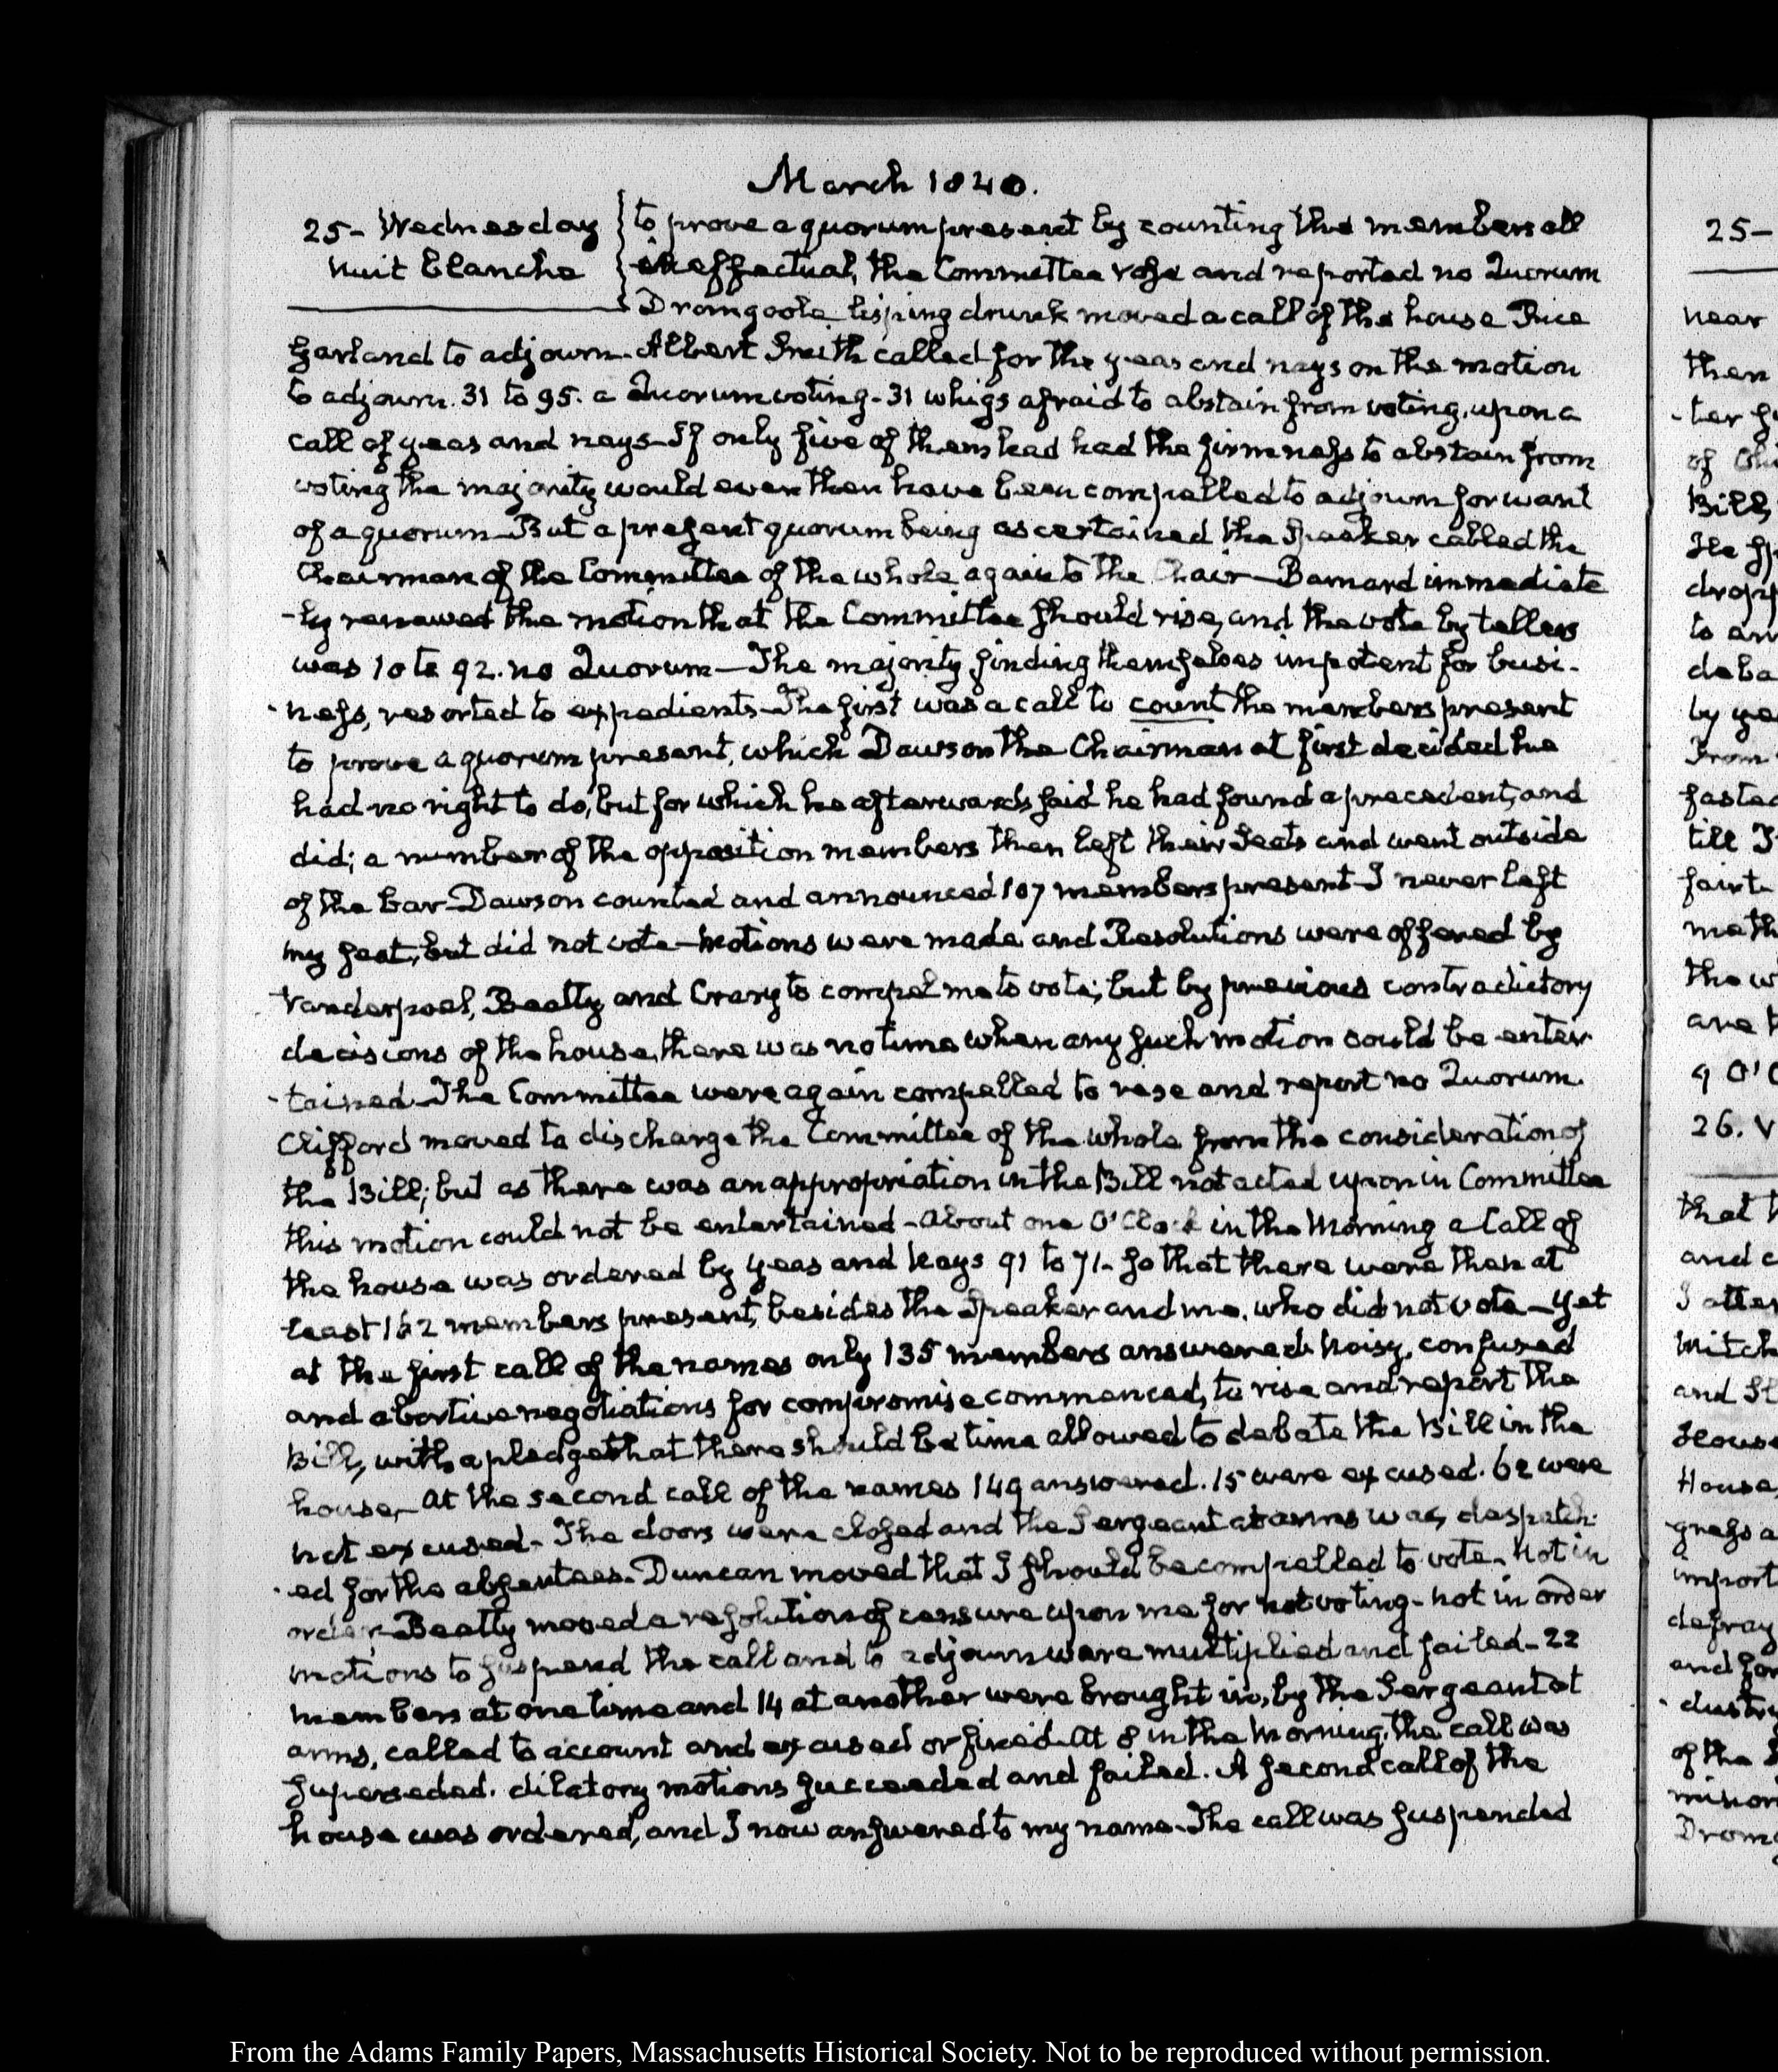 March 1840.
25- Wednesday
Nuit blanche
to prove a quorum present by counting the members all
ineffectual, the Committee rose and reported no Quorum
Dromgoole lisping drunk moved a call of the house Rice
Garland to adjourn. Albert Smith called for the yeas and nays on the motion
to adjourn. 31 to 95. a Quorum voting - 31 whigs afraid to abstain from voting, upon a
call of yeas and nays - If only five of them had had the firmness to abstain from
voting the majority would even then have been compelled to adjourn for want
of a quorum - But a present quorum being ascertained the Speaker called the
Chairman of the Committee of the whole again to the Chair - Barnard immediate
-ly renewed the motion that the Committee should rise, and the vote by tellers
was 10 to 92. no Quorum - The majority finding themselves impotent for busi-
-ness, resorted to expedients - The first was a call to count the members present
to prove a quorum present, which Dawson the Chairman at first decided he
had no right to do, but for which he afterwards said he had found a precedent, and
did; a number of the opposition members then left their seats and went outside
of the bar - Dawson counted and announced 107 members present - I never left
my seat, but did not vote - Motions were made and Resolutions were offered by
Vanderpoel, Beatty and Crary to compel me to vote; but by previous contradictory
decisions of the house, there was no time when any such motion could be enter-
-tained - The Committee were again compelled to rise and report no Quorum.
Clifford moved to discharge the Committee of the whole from the consideration of
the Bill; but as there was an appropriation in the Bill not acted upon in Committee
this motion could not be entertained - About one O'Clock in the Morning a Call of
the house was ordered by yeas and nays 91 to 71 - so that there were then at
least 162 members present, besides the Speaker and me, who did not vote - yet
at the first call of the names only 135 members answered. Noisy, confused
and abortive negotiations for compromise commenced, to rise and report the
Bill, with a pledge that there should be time allowed to debate the Bill in the
house - At the second call of the names 149 answered. 15 were excused. 62 were
not excused - The doors were closed and the Sergeant at arms was despatch-
-ed for the absentees. Duncan moved that I should be compelled to vote - Not in
order - Beatty moved a resolution of censure upon me for not voting - not in order
motions to suspend the call and to adjourn were multiplied and failed - 22
members at one time and 14 at another were brought in, by the Sergeant at
arms, called to account and excused or fined. At 8 in the Morning, the call was
superseded. dilatory motions succeeded and failed. A second call of the
house was ordered, and I now answered to my name - The call was suspended
25-
near
then
of
Bill,
to
by
From
till
are
9
26.
that
and
House
House,
import
defray
and for
of the
From the Adams Family Papers, Massachusetts Historical Society. Not to be reproduced without permission.